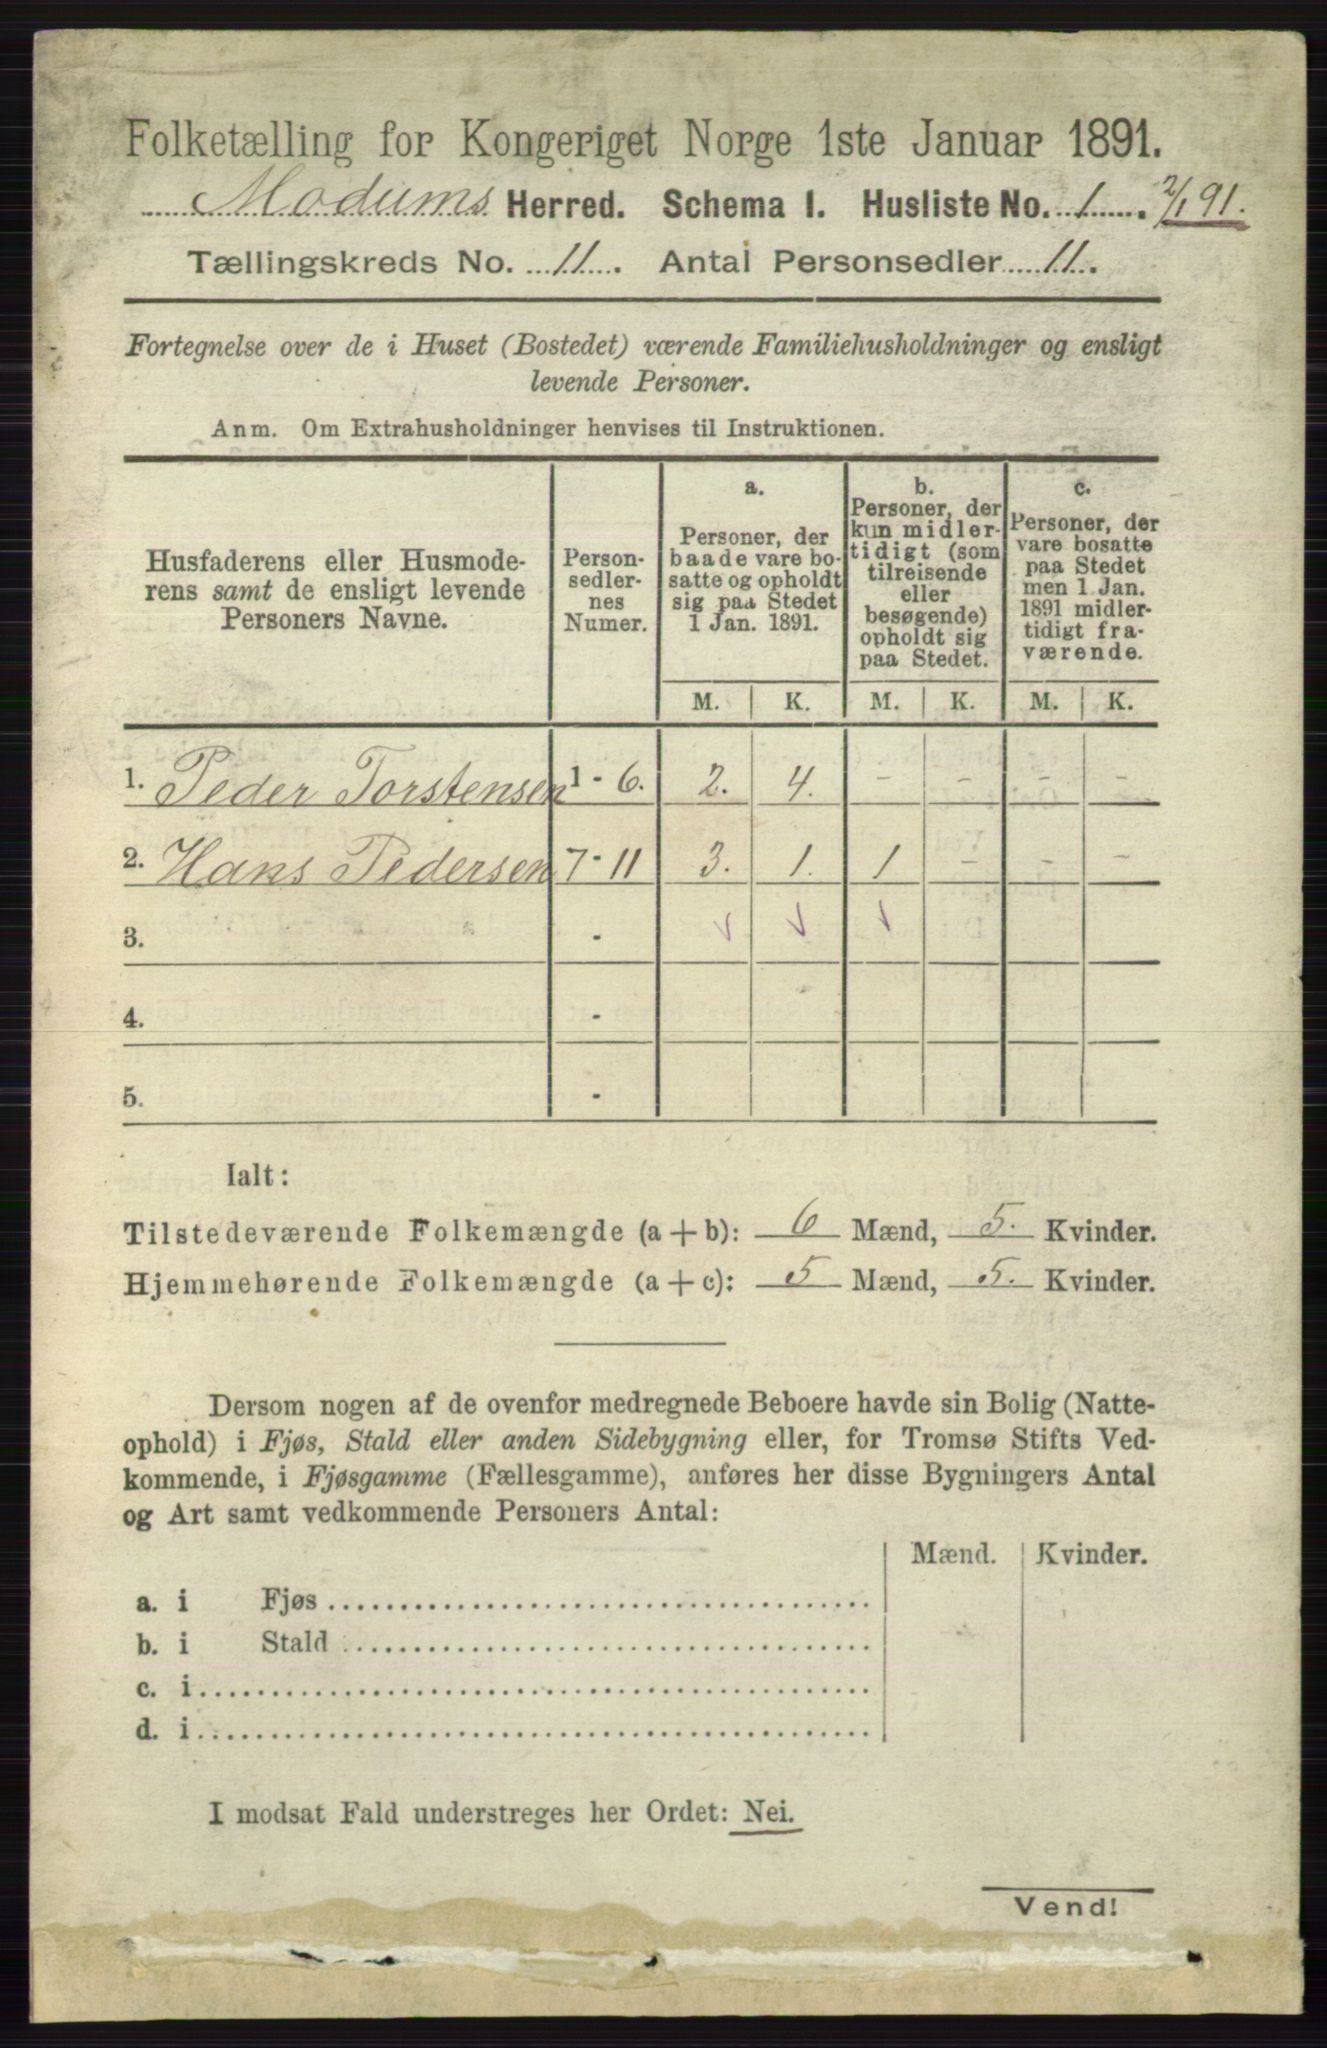 Folketælling for Kongeriget Norge 1ste Januar 1891.
Modums Herred. Schema I. Husliste No. 1. 2/1 91.
Tællingskreds No. 11. Antal Personsedler 11.
Fortegnelse over de i Huset (Bostedet) værende Familiehusholdninger og ensligt
levende Personer.
Anm. Om Extrahusholdninger henvises til Instruktionen.
Husfaderens eller Husmode-
rens samt de ensligt levende
Personers Navne.
Person-
sedler-
nes
Numer.
a.
Personer, der
baade vare bo-
satte og opholdt
sig paa Stedet
1 Jan. 1891.
b.
Personer, der
kun midler-
tidigt (som
tilreisende
eller
besøgende)
opholdt sig
paa Stedet.
c.
Personer, der
vare bosatte
paa Stedet
men 1 Jan.
1891 midler-
tidigt fra-
værende.
M. K. M. K. M. K.
1. Peder Torstensen 1 - 6. 2. 4. - - - -
2. Hans Pedersen 7 - 11 3. 1. 1 - - -
3. -
4. -
5. -
Ialt:
Tilstedeværende Folkemængde (a + b): 6 Mænd, 5. Kvinder.
Hjemmehørende Folkemængde (a + c): 5 Mænd, 5. Kvinder.
Dersom nogen af de ovenfor medregnede Beboere havde sin Bolig (Natte-
ophold) i Fjøs, Stald eller anden Sidebygning eller, for Tromsø Stifts Ved-
kommende, i Fjøsgamme (Fællesgamme), anføres her disse Bygningers Antal
og Art samt vedkommende Personers Antal:
Mænd. Kvinder.
a. i Fjøs
b. i Stald
c. i
d. i
I modsat Fald understreges her Ordet: Nei.
Vend!